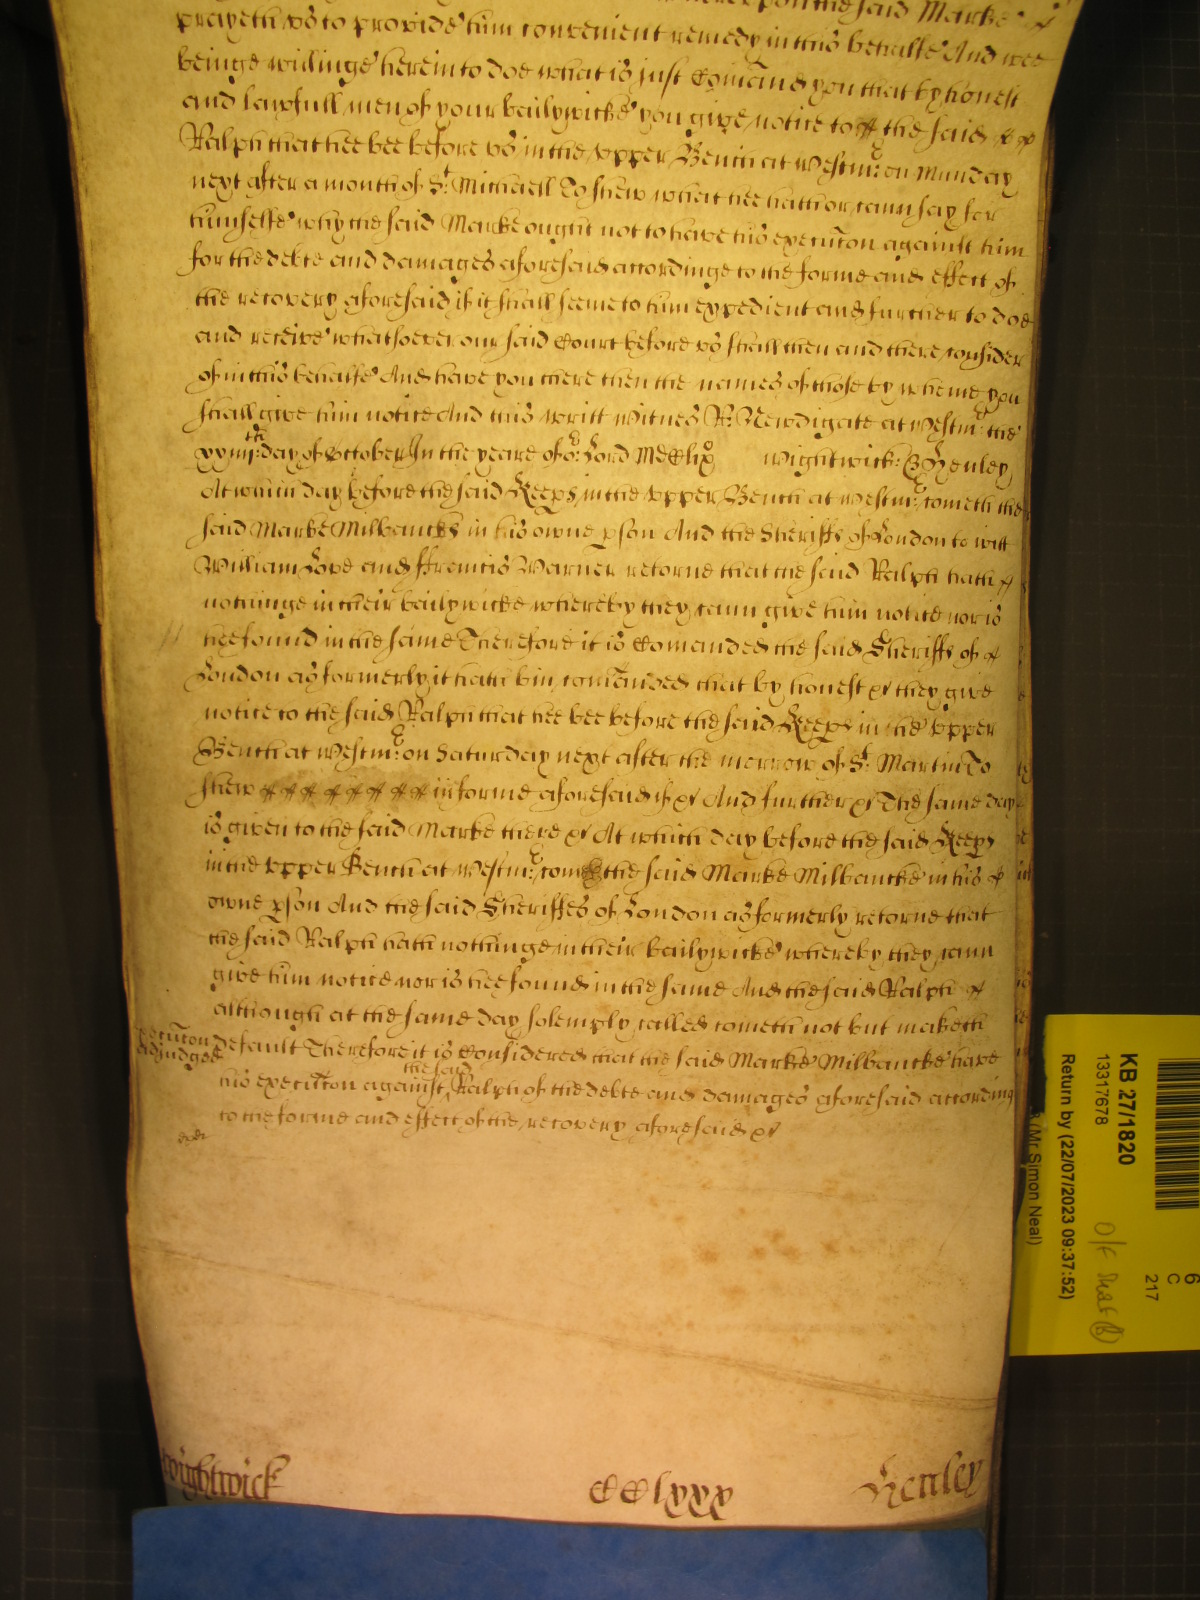 the said Marke
prayeth vs to provide him convenient remedy in this behalfe And wee
beinge willinge herein to doe what is just Comaund you that by honest
and lawfull men of your bailywicke you give notice to the said
Ralph that hee bee before vs in the vpper Bench at Westmr. on Munday
next after a month of St. Michaell To shew what hee hath or cann say for
himselfe why the said Marke ought not to have his execucon against him
for the debte and damages aforesaid accordinge to the forme and effect of
the recovery aforesaid if it shall seeme to him expedient and further to doe
and receive whatsoever our said Court before vs shall then and there consider
of in this behalfe And have you there then the names of those by whome you
shall give him notice And this writt Witnes R. Newdigate at Westmr. the
xxiiijth. day of October In the yeare of or. Lord MDClixo Wightwick: & Henley
At which day before the said Keeps in the vpper Bench at Westmr. cometh the
said Marke Milbancke in his owne pson And the Sheriffs of London to witt
William Love and ffrancis Warner retorne that the said Ralph hath
nothinge in their bailywicke whereby they cann give him notice nor is
hee found in the same Therefore it is Comanded the said Sheriffs of
London as formerly it hath bin comanded that by honest &c they give
notice to the said Ralph that hee bee before the said Keeps in the vpper
Bench at Westmr. on Saturday next after the morrow of St. Martin To
shew in forme aforesaid if &c And further &c The same day
is given to the said Marke there &c At which day before the said Keeps
in the vpper Bench at Westmr. com the said Marke Milbancke in his
owne pson And the said Sheriffes of London as formerly retorne that
the said Ralph hath nothinge in their bailywicke whereby they cann
give him notice nor is hee found in the same And the said Ralph
although at the same day solemply called cometh not but maketh
Execucon
adiudged
default Therefore it is Considered that the said Marke Milbancke have
the said
his execucon against Ralph of the debte and damages aforesaid according
to the forme and effect of the recovery aforesaid &c
Wightwick
CClxxx
Henley
KB 27/1820
13317678
Return by (22/07/2023 09:37:52)
(Mr Simon Neal)
6
C
217